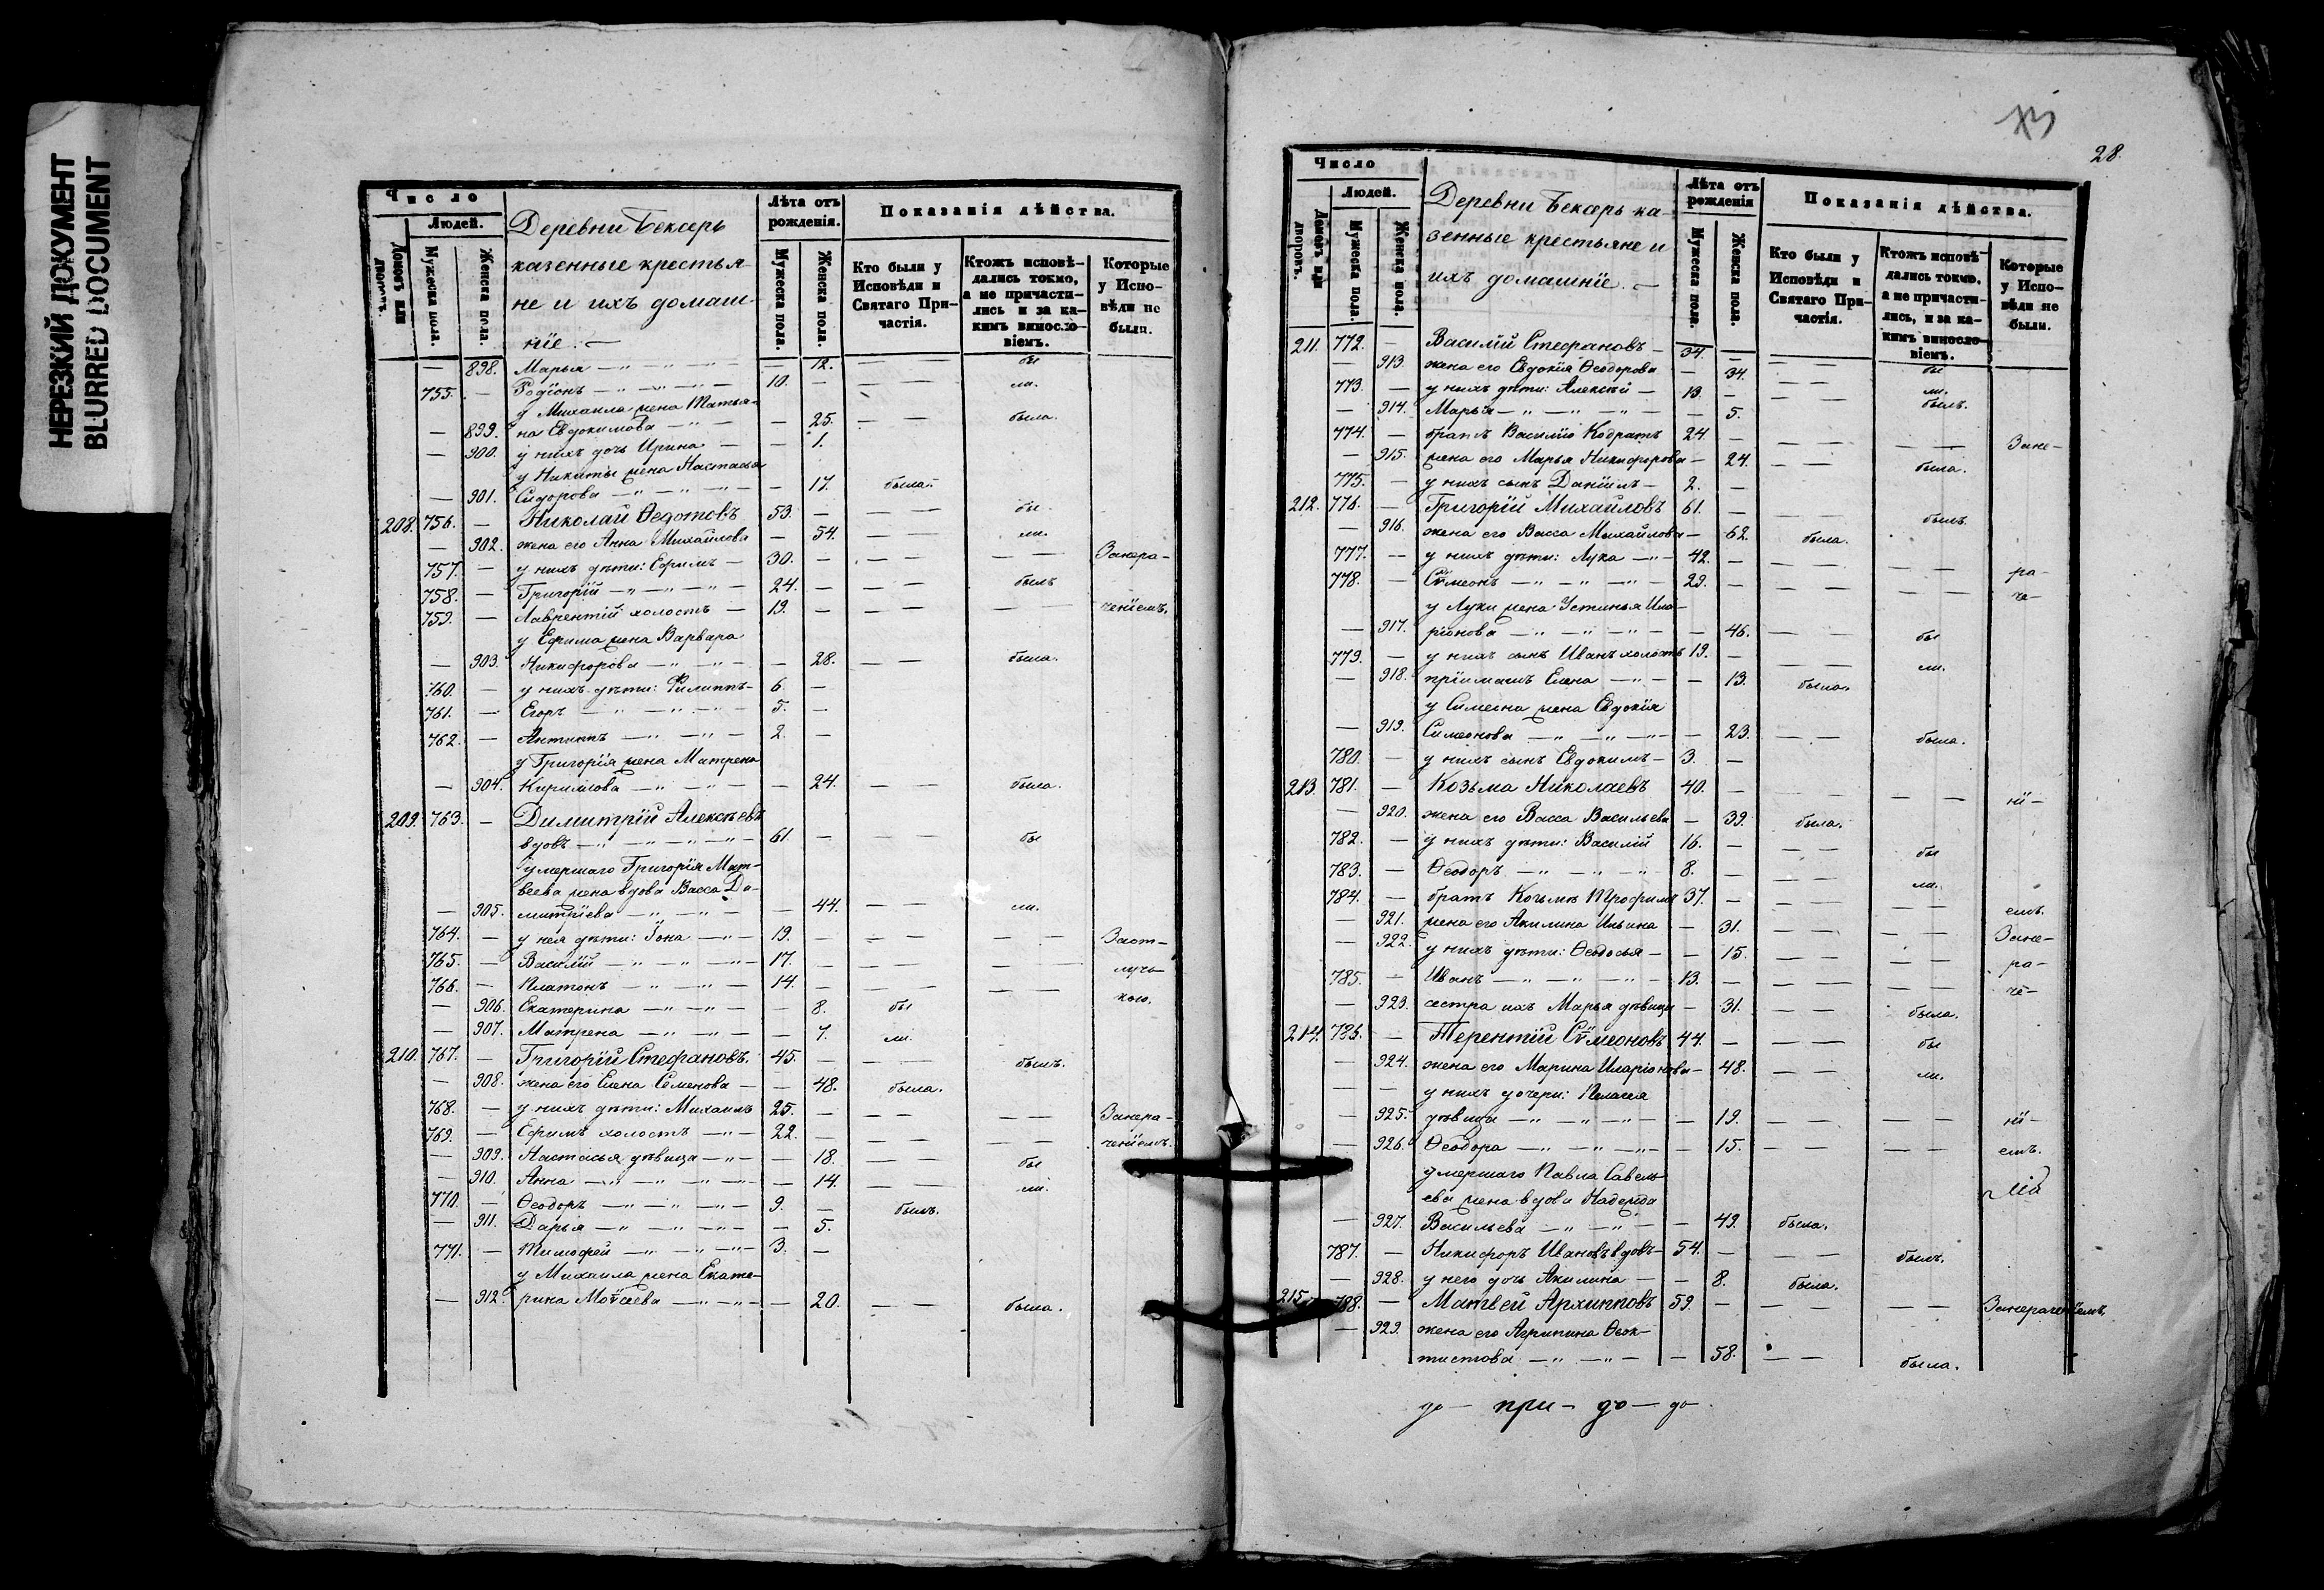 НЕРЕЗКИЙ ДОКУМЕНТ
BLURRED DOCUMENT
Число
Людей.
Домовъ или дворовъ.
Мужеска пола.
Женска пола.
Деревни Бексерь
казенные крестья-
не и ихъ домаш-
нiе. —
Лѣта отъ рожденія.
Мужеска пола.
Женска пола.
Показанія дѣйства.
Кто были у Исповѣди и Святаго Причастія.
Ктожъ исповѣдались токмо, а не причастились и за какимъ винословіемъ.
Которые у Исповѣди не были.
— 898. Марья — 12. — — бы
755. — Родіонъ 10. — — — ли.
у Михаила жена Татья-
— 899. на Евдокимова — 25. — — была.
— 900. у нихъ дочь Ирина — — 1.
у Никиты жена Настасья
— 901. Сидорова — 17. была.
208. 756. — Николай Ѳедотовъ 53. — — — бы
— 902. жена его Анна Михайлова — 54. — — ли.
757. — у нихъ дѣти: Ефимъ — 30. — — — — — Занера-
758. — Григорій 24. — — — былъ
759. — Лаврентій холостъ — 19. — — — — — ченіемъ.
у Ефима жена Варвара
— 903. Никифорова — 28. — — была.
760. — у нихъ дѣти: Филиппъ — 6. —
761. — Егоръ 5. —
762. — Антипъ 2. —
у Григорія жена Матрена
— 904. Кирилова — 24. — — была.
209. 763. — Димитрій Алексѣевъ
вдовъ 61. — — — бы
умершаго Григорія Мат-
веева жена вдова Васса Ди-
— 905. митріева — 44. — — ли.
764. — у нея дѣти: Іона 19. — — — — — Заот-
765. — Василій 17. — — — — — луч-
766. — Платонъ 14. — — — — — кою.
— 906. Екатерина — 8. бы
— 907. Матрена — 7. ли.
210. 767. — Григорій Стефановъ. 45. — — — былъ.
— 908. жена его Елена Семенова — — 48. была.
768. — у нихъ дѣти: Михаилъ 25. — — — — — Занера-
769. — Ефимъ холостъ 22. — — — — — ченіемъ.
— 909. Настасья дѣвица — 18. — — бы
— 910. Анна — 14. — — ли.
770. — Ѳеодоръ 9. — былъ.
— 911. Дарья — 5.
771. — Тимофей 3. —
у Михаила жена Екате-
— 912. рина Моѵсеева — 20. — — была.
28.
Число
Людей.
Домовъ или дворовъ.
Мужеска пола.
Женска пола.
Деревни Бексерь ка-
зенные крестьяне и
ихъ домашніе. —
Лѣта отъ рожденія
Мужеска пола.
Женска пола.
Показанія дѣйства.
Кто были у Исповѣди и Святаго Причастія.
Ктожъ исповѣдались токмо, а не причастились, и за какимъ винословіемъ.
Которые у Исповѣди не были.
211. 772. — Василій Стефановъ — 34. — — — бы
— 913. жена его Евдокія Ѳеодорова — 34. — — ли.
773. — у нихъ дѣти: Алексѣй — 13. — — — былъ.
— 914. Марья — 5.
774. — братъ Василію Кодратъ 24. — — — — — Зане-
— 915. жена его Марья Никифорова — 24. — — была.
775. — у нихъ сынъ Даніилъ — 2. —
212. 776. — Григорій Михайловъ 61. — — — былъ.
— 916. жена его Васса Михайлова — 62. была.
777. — у нихъ дѣти: Лука 42. — — — — — ра-
778. — Сѵмеонъ 29. — — — — — че-
у Луки жена Устинья Ила-
— 917. ріонова — 46. — — бы
779. — у нихъ сынъ Иванъ холостъ 19. — — — ли.
— 918. пріимашъ Елена — 13. была.
у Симеона жена Евдокія
— 919. Симеонова — 23. — — была.
780. — у нихъ сынъ Евдокимъ — 3. —
213. 781. — Козьма Николаевъ 40. — — — — — ні-
— 920. жена его Васса Васильева — 39. была.
782. — у нихъ дѣти: Василій 16. — — — бы
783. — Ѳеодоръ 8. — — — ли.
784. — братъ Козьмѣ Трофимъ 37. — — — — — емъ.
— 921. жена его Акилина Ильина — 31. — — — — Зане-
— 922. у нихъ дѣти: Ѳеодосья — — 15. — — — — ра-
785. — Иванъ 13. — — — — — че-
— 923. сестра ихъ Марья дѣвица — 31. — — была.
214. 786. — Терентій Сѵмеоновъ 44. — — — бы
— 924. жена его Марина Иларіонова — 48. — — ли.
— — у нихъ дочери: Пелагея
— 925. дѣвица — 19. — — — — ні-
— 926. Ѳеодора — 15. — — — — емъ.
умершаго Павла Савель-
ева жена вдова Надежда
— 927. Васильева — 49. была.
787. — Никифоръ Ивановъ вдовъ — 54. — — — былъ.
— 928. у него дочь Акилина — — 8. была.
215. 788. — Матвей Архиповъ 59. — — — — Занераченіемъ.
— 929. жена его Агрипина Ѳеок-
тистова — 58. — — была.
до — при — до — до —